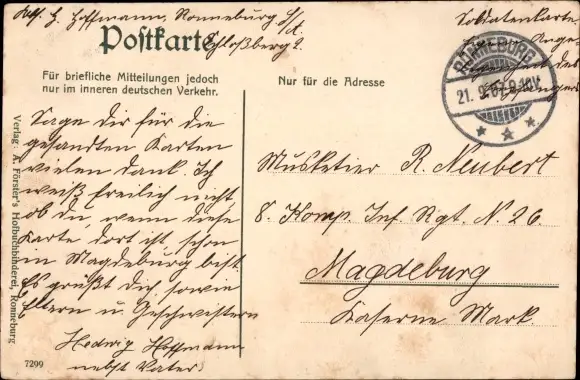 H. Hoffmann, Ronneburg S/A.
Schloßberg 2.
Postkarte
Soldatenkarte.
Eigene
Angelegenheit des
Empfängers
RONNEBURG
21. 9. 07. 9-10V.
Für briefliche Mitteilungen jedoch
nur im inneren deutschen Verkehr.
Nur für die Adresse
Sage dir für die
gesandten Karten
vielen Dank. Ich
weiß freilich nicht,
ob du, wenn diese
Karte dort ist, schon
in Magdeburg bist.
Es grüßt dich, sowie
Eltern u. Geschwistern
Hedwig Hoffmann
nebst Vater.
Musketier R. Neubert
8. Komp. Inf. Rgt. N. 26.
Magdeburg
Kaserne Mark.
Verlag: A. Förster's Hofbuchbinderei, Ronneburg
7299